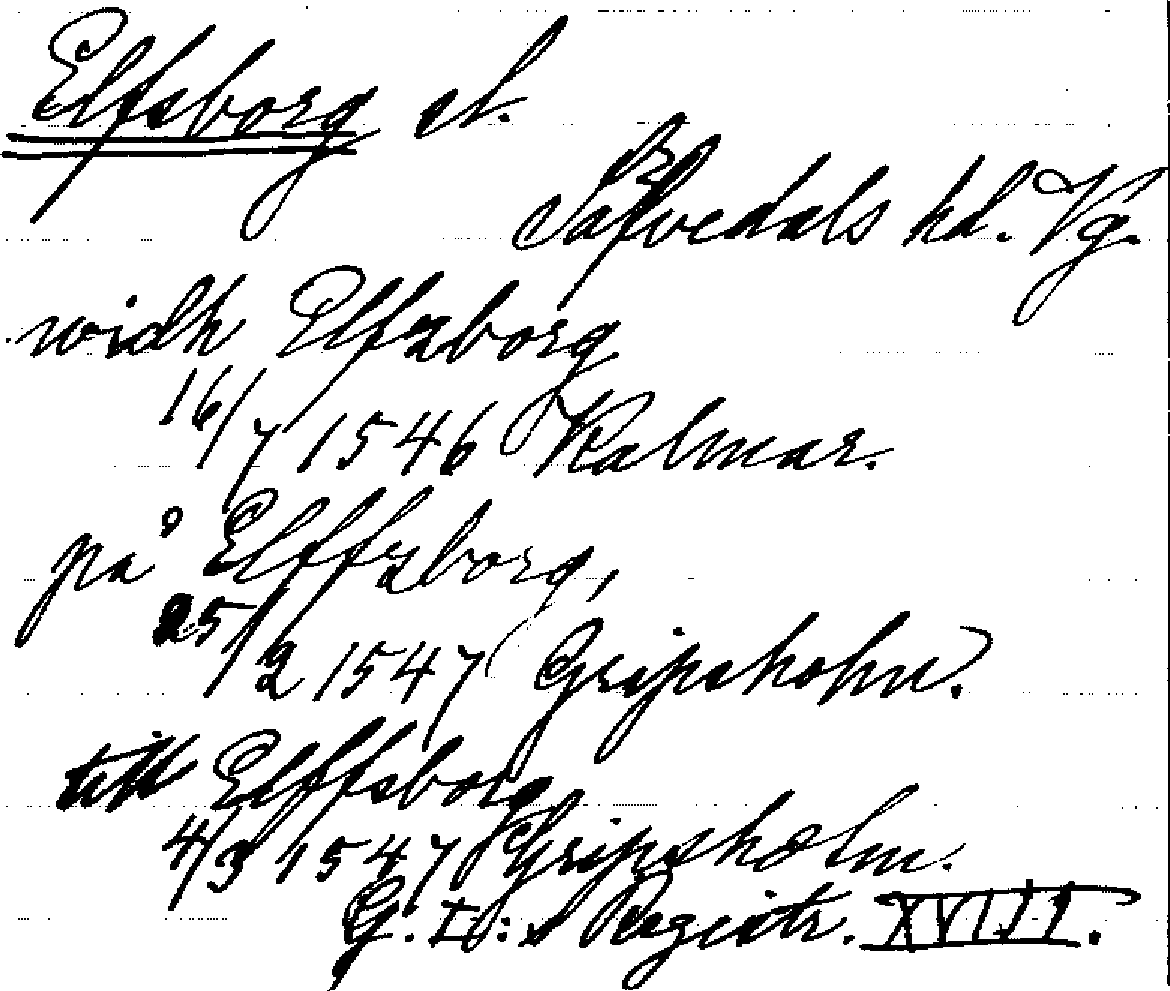 Elfsborg sl.
Säfvedals hd. Vg.
widh Elfsborg
16/7 1546 Kalmar.
på Elffzborg,
25/2 1547 Gripsholm.
till Elffsborg
4/3 1547 Gripsholm.
G. I:s Registr. XVIII.